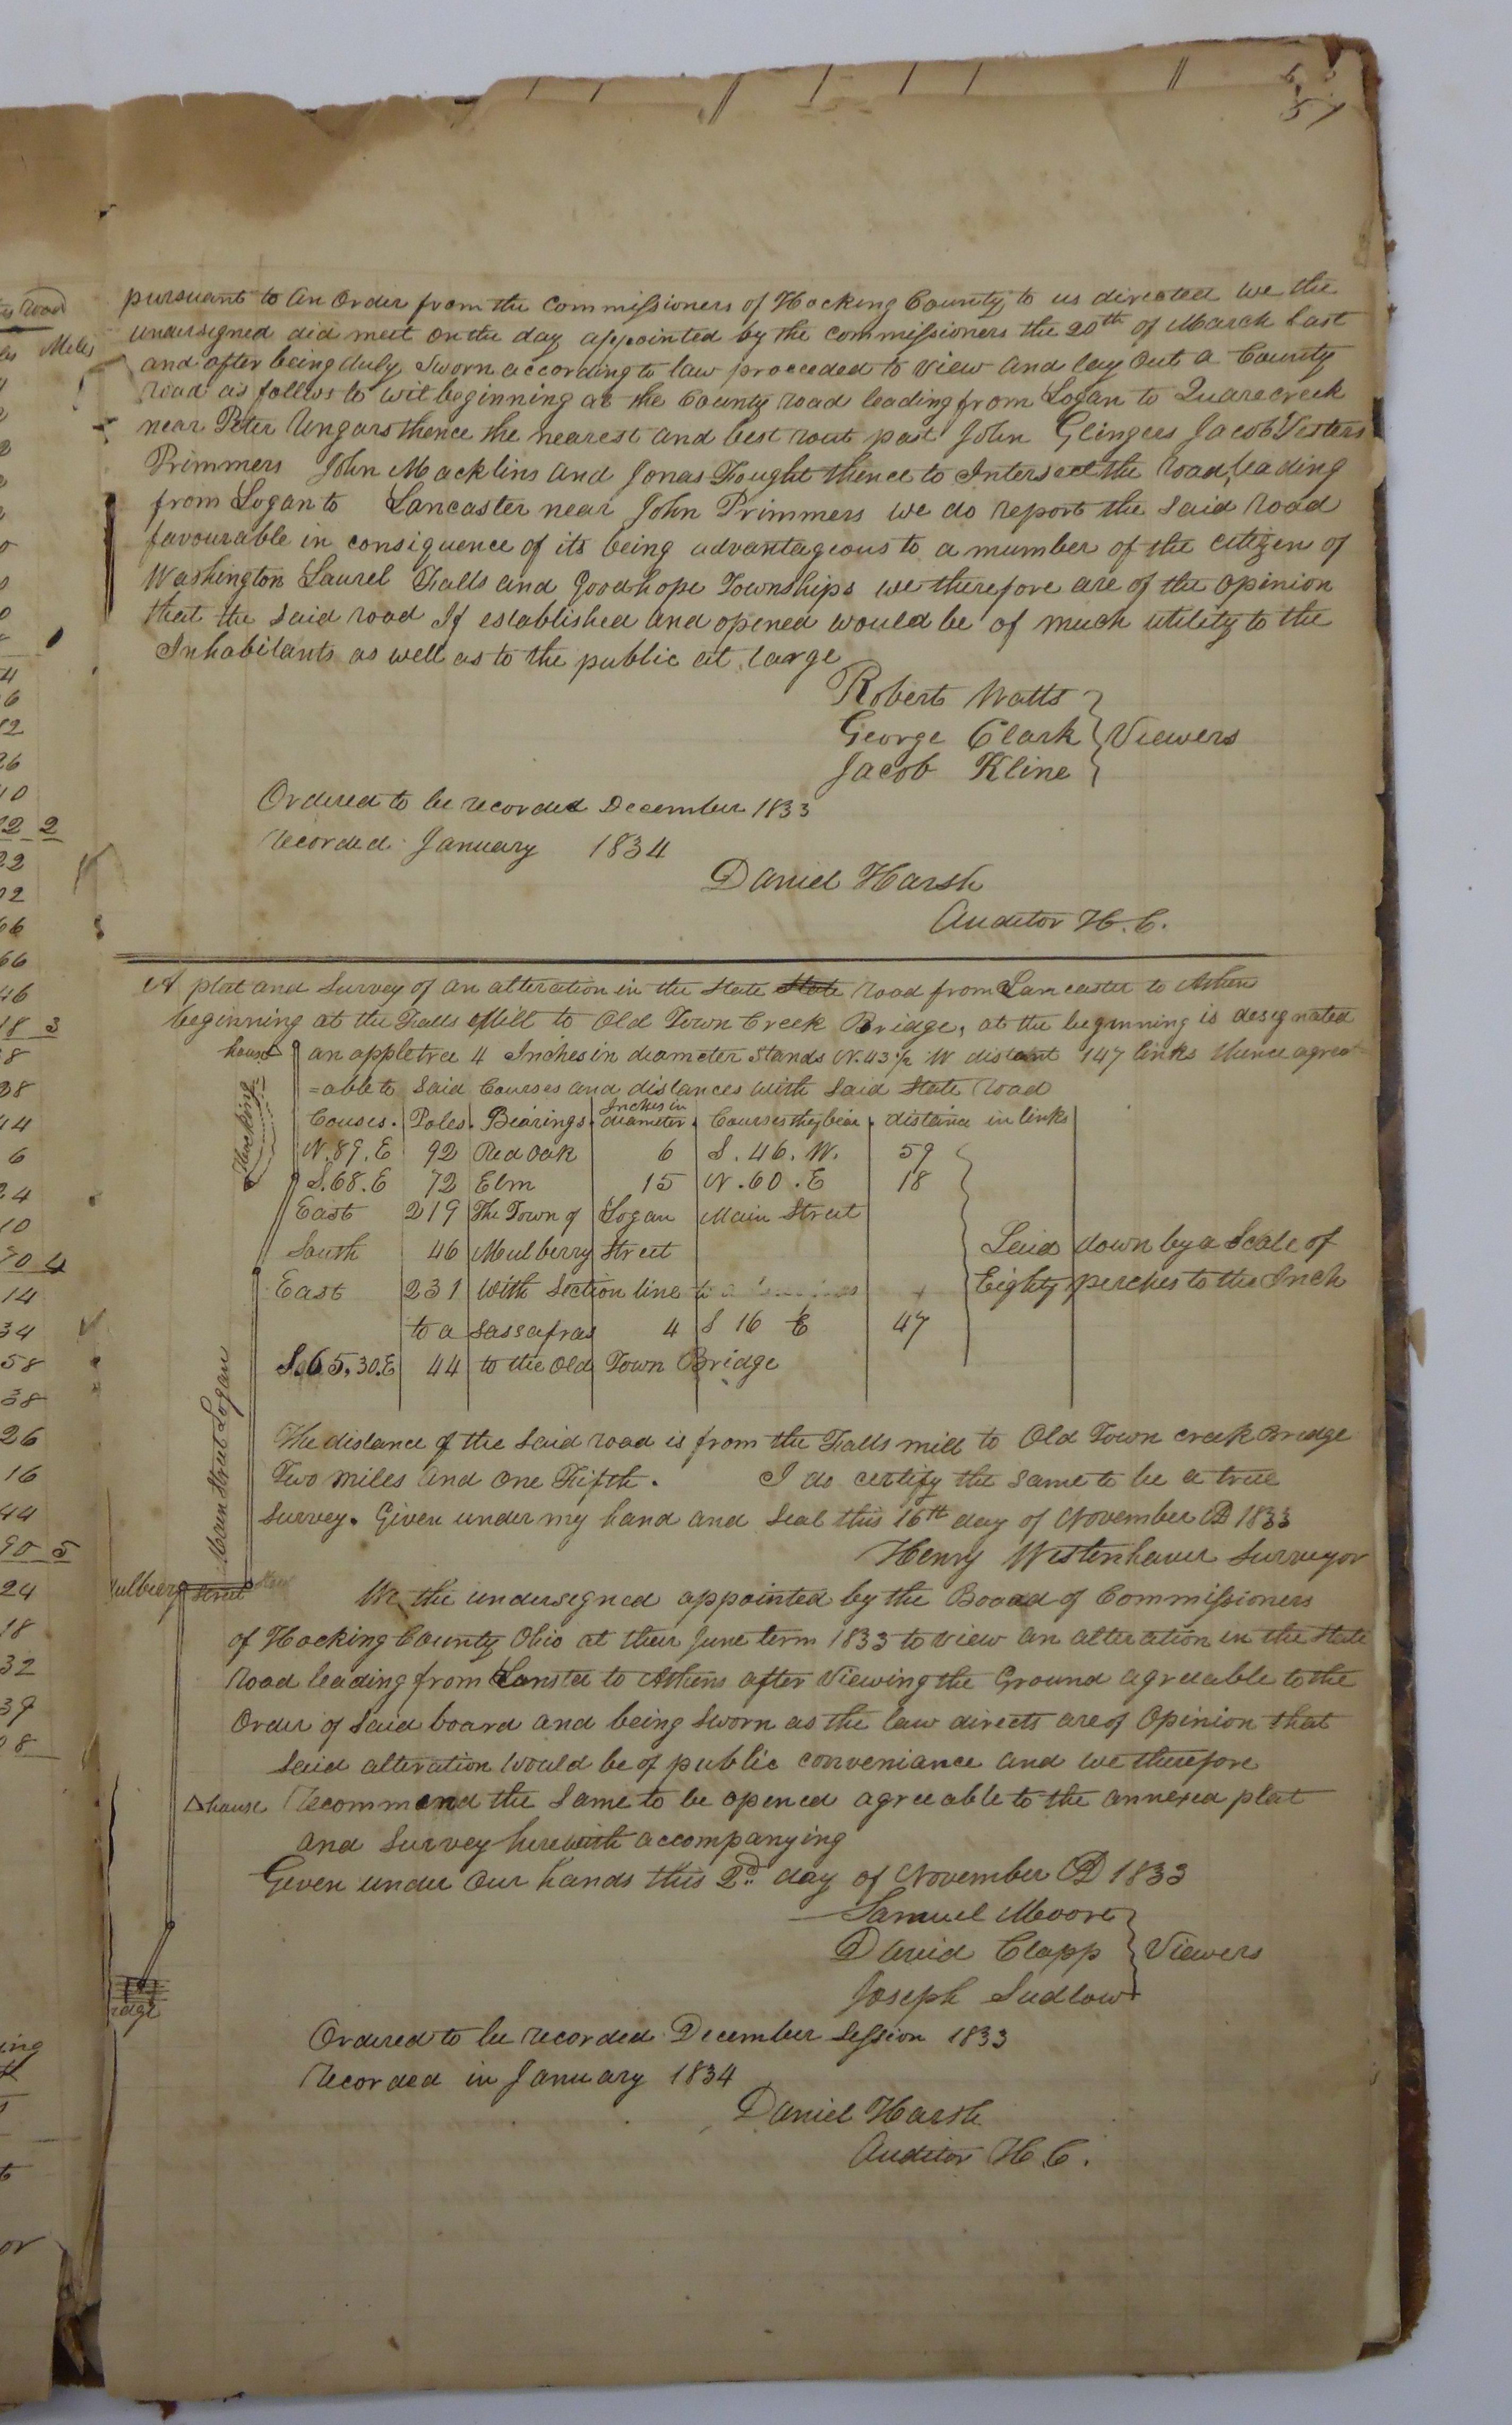 57
pursuant to An Order from the Commissioners of Hocking County to us directed we the
undersigned did meet on the day appointed by the commissioners the 20th of March Last
and after being duly Sworn according to law proceeded to view and lay Out a County
road as follows to wit beginning at the County road leading from Logan to Quarecreek
near Peter Ungars thence the nearest and best rout past John Glingers Jacob
Primmers John Macklins and Jonas Fought thence to Intersect the road leading
from Logan to Lancaster near John Primmers we do report the said road
favourable in consiguence of its being advantageous to a mumber of the citizen of
Washington Laurel Falls and Goodhope Townships we therefore are of the opinion
that the said road If established and opened would be of much utility to the
Inhabitants as well as to the public at large
Robert Watts
George Clark Viewers
Jacob Kline
Ordered to be recorded December 1833
recorded January 1834
Daniel Harsh
Auditor H. C.
A plat and Survey of an alteration in the State State road from Lancaster to Athens
beginning at the Falls Mill to Old Town Creek Bridge, at the beginning is designated
house an appletree 4 Inches in diameter Stands N. 43 1/2 W distant 147 links thence agree
=able to said Courses and distances with said State road
Hocking
Couses. Poles. Bearings. Inches in diameter. Courses they bear. distance in links
N. 89. E 92 Red Oak 6 S. 46. W. 59
S. 68. E 72 Elm 15 N. 60. E 18
East 219 The Town of Logan Main Street
South 46 Mulberry Street
Laid down by a Scale of
East 231 With Section line to
Eighty perches to the Inch
to a Sassafras 4 S 16 E 47
S. 65, 30. E 44 to the Old Town Bridge
Main Street Logan
The distance of the said road is from the Falls mill to Old Town creek Bredge
Two miles and one Fifth. I do certify the same to be a true
Survey. Given under my hand and Seal this 16th day of November AD 1833
Henry Westenhaver Surveyor
Mulbery Street
We the undersigned appointed by the Board of Commissioners
of Hocking County Ohio at their June term 1833 to view an alteration in the State
road leading from to Athens after Viewing the Ground agreeable to the
Order of said board and being Sworn as the law directs are of Opinion that
said alteration would be of public conveniance and we therefore
house Recommend the Same to be opened agreeable to the annexed plat
and Survey herewith accompanying
Given under Our hands this 2d day of November AD 1833
Samuel Moore
David Clapp Viewers
Joseph Sudlow
Ordered to be recorded December Session 1833
Recorded in January 1834
Daniel Harsh
Auditor H. C.